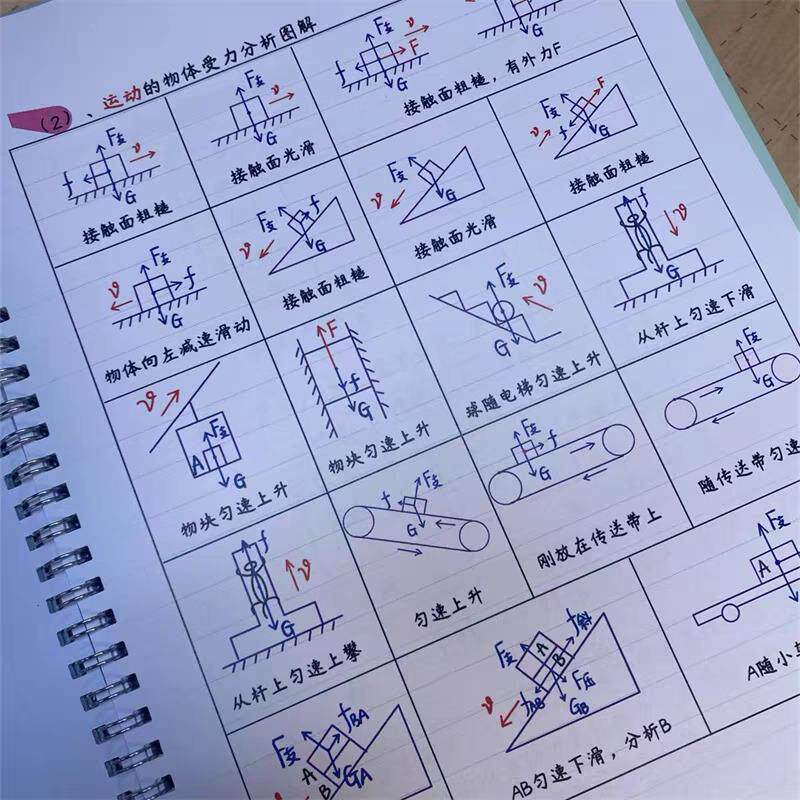 (2)、运动的物体受力分析图解
F支 v f G
接触面粗糙
F支 v G
接触面光滑
F支 v f F G
G
接触面粗糙，有外力F
F支 v f G
物体向左减速滑动
F支 f v G
接触面粗糙
F支 v G
接触面光滑
F支 F v f G
接触面粗糙
v F支 A G
物块匀速上升
F f G
物块匀速上升
F支 v G
球随电梯匀速上升
f v G
从杆上匀速下滑
f v G
从杆上匀速上攀
F支 f G
匀速上升
F支 f G
刚放在传送带上
F支 G
随传送带匀速
F支 fBA A B GA
F支 A B f斜 fAB F压 GB v
AB匀速下滑，分析B
F支 A
A随小